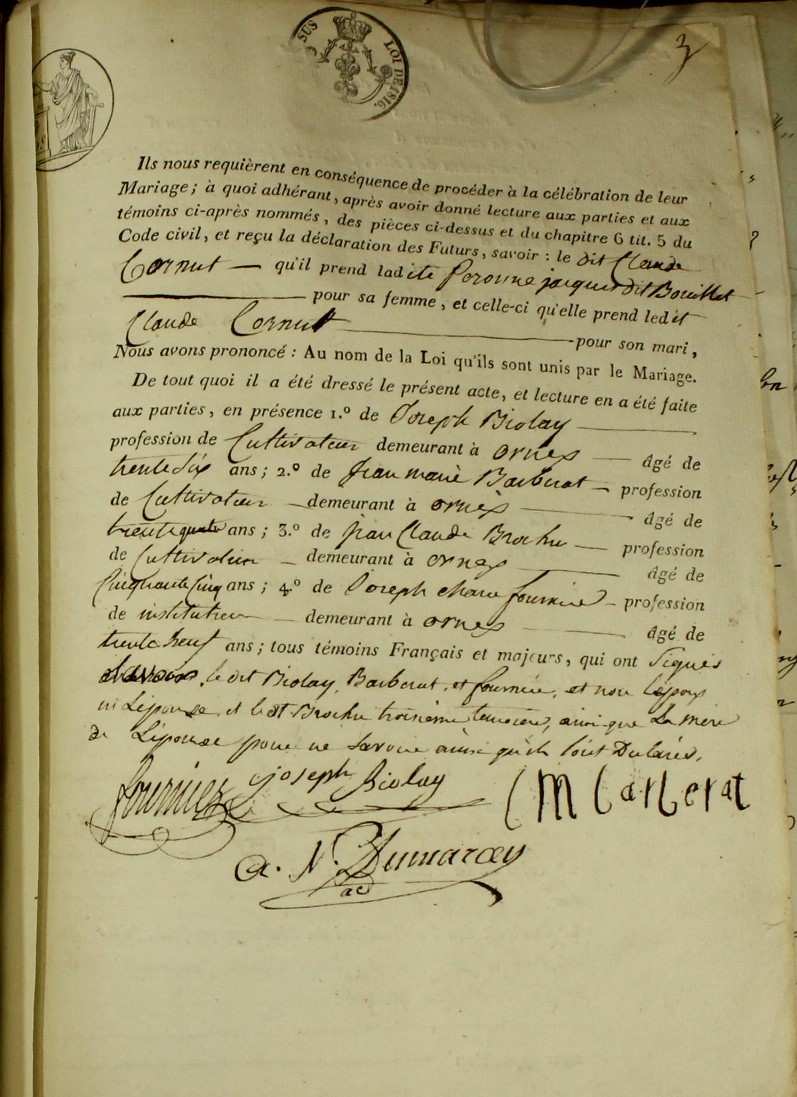 SUS LOI DE 1816.
3
Ils nous requièrent en conséquence de procéder à la célébration de leur
Mariage; à quoi adhérant, après avoir donné lecture aux parties et aux
témoins ci-après nommés, des pièces ci-dessus et du chapitre 6 tit. 5 du
Code civil, et reçu la déclaration des Futurs, savoir : le dit Claude
Cornut — qu'il prend ladite peronne jacquet dit Bouillet
pour sa femme, et celle-ci qu'elle prend ledit
Claude Cornut pour son mari,
Nous avons prononcé : Au nom de la Loi qu'ils sont unis par le Mariage.
De tout quoi il a été dressé le présent acte, et lecture en a été faite
aux parties, en présence 1.º de Joseph Biolay
profession de Cultivateur demeurant à ornex — âgé de
trente six ans; 2.º de jean marie Barberat — profession
de Cultivateur — demeurant à ornex — âgé de
trente quatre ans; 3.º de jean Claude Brochu — profession
de Cultivateur — demeurant à ornex — âgé de
Cinquante Cinq ans; 4.º de Joseph marie fournier — profession
de instituteur — demeurant à ornex — âgé de
trente neuf ans; tous témoins Français et majeurs, qui ont Signés
le dit Biolay, Barberat, et fournier, et non l'époux
ni L'épouse, et le dt Brochu troisième temoins, ainsi que La mère
de L'épouse pour ne Savoir ainsi qu'ils l'ont Déclarés.
fournier joseph Biolay Barberat